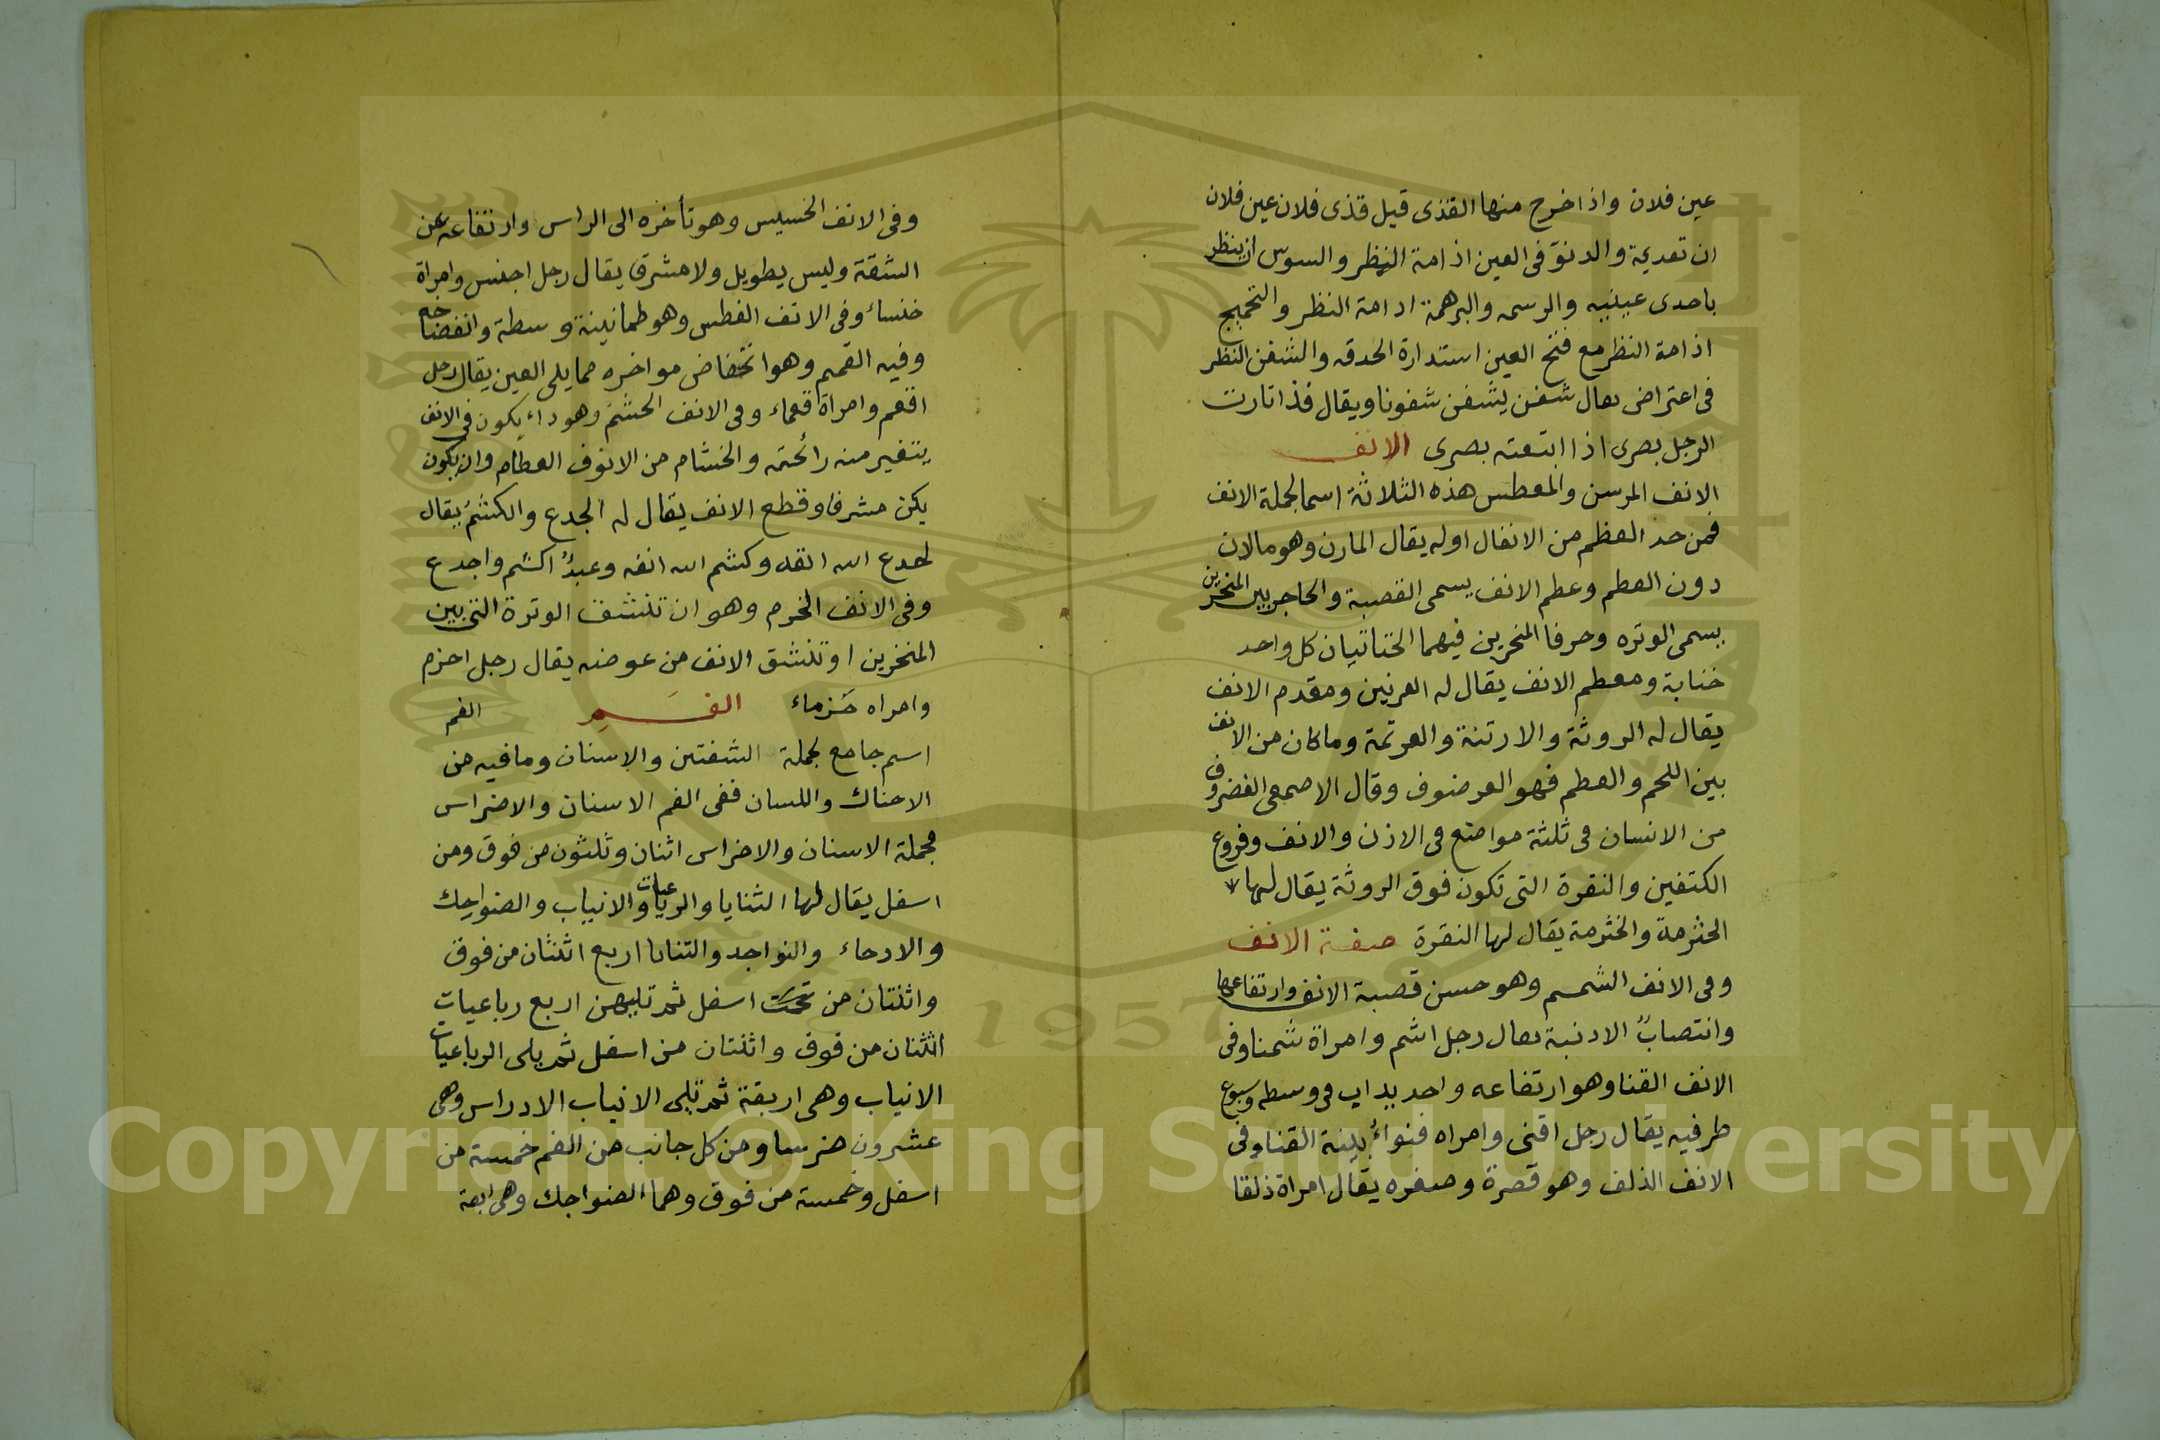 عين فلان واذا خرج منها القذى قيل قذى فلان عين فلان
ان تعديمة والدنؤ فى العين اذامة النظر والسوس ان ينظر
باحدى عينيه والرسمه والبرهمة ادامة النظر والتحميج
اذامة النظر مع فتح العين استدارة الحدقه والشفن النظر
فى اعتراض يعال شفن يشفن شفونا ويقال قذ اتارت
الرجل بصرى اذا ابتعته بصرى الانف
الانف المرسن والمعطس هذه الثلاثة اسما لجملة الانف
فمن حد العظم من الانفال اوله يقال المارن وهو مالان
دون العظم وعظم الانف يسمى القصبة والحاجز بين المنخرين
يسمى الوتره وحرفا المنخرين فيهما الخنابتان كل واحد
خنابة ومعظم الانف يقال له العرنين ومقدم الانف
يقال له الروثة والارتنة والعرتمة وماكان من الانف
بين اللحم والعظم فهو العرضوف وقال الاصمعى الغضروف
من الانسان فى ثلثة مواضع فى الاذن والانف وفروع
الكتفين والنقرة التى تكون فوق الروثة يقال لها
الحثرمة والخثرمة يقال لها النقرة صفة الانف
وفى الانف الشمم وهو حسن قصبة الانف وارتفاعها
وانتصاب الادنبة يعال رجل اشم وامراة شمنا وفى
الانف القنا وهو ارتفاعه واحديداب فى وسطه وسبوع
طرفيه يقال رجل اقنى وامراه قنواء بينة القنا وفى
الانف الذلف وهو قصرة وصغره يقال امراة ذلفا
وفى الانف الخسيس وهو تأخره الى الراس وارتفاعه عن
الشقة وليس بطويل ولا مشرق يقال رجل اخنس وامراة
خنساء وفى الانف الفطس وهو طمانينة وسطة وانفضاخه
وفيه القمم وهو انخفاض مواخره مما يلى العين يقال رجل
اقعم وامراة قعماء وفى الانف الخشم وهو داء يكون فى الانف
يتغير منه رائحته والخشام من الانوف العظام وان يكون
يكن مشرفا وقطع الانف يقال له الجدع والكشم يقال
لجدع الله انفه وكشم الله انفه وعبد اكشم واجدع
وفى الانف الخرم وهو ان تنشق الوترة التى بين
المنخرين او تنشق الانف من عوضه يقال رجل اخزم
وامراه خزماء الفم الفم
اسم جامع لجملة الشفتين والاسنان ومافيه من
الاحناك واللسان ففى الفم الاسنان والاضراس
فجملة الاسنان والاضراس اثنان وثلثون من فوق ومن
اسفل يقال لها الثنايا والرباعيات والانياب والضواحك
والارحاء والنواجد والثنايا اربع اثنتان من فوق
واثنتان من تحت اسفل ثم تليهن اربع رباعيات
اثنان من فوق واثنتان من اسفل ثم يلى الرباعيات
الانياب وهى اربعة ثم تلى الانياب الادراس وهى
عشرون ضرسا ومن كل جانب من الفم خمسة من
اسفل وخمسة من فوق وهما الضواجك وهى ابعة
Copyright © King Saud University
1957